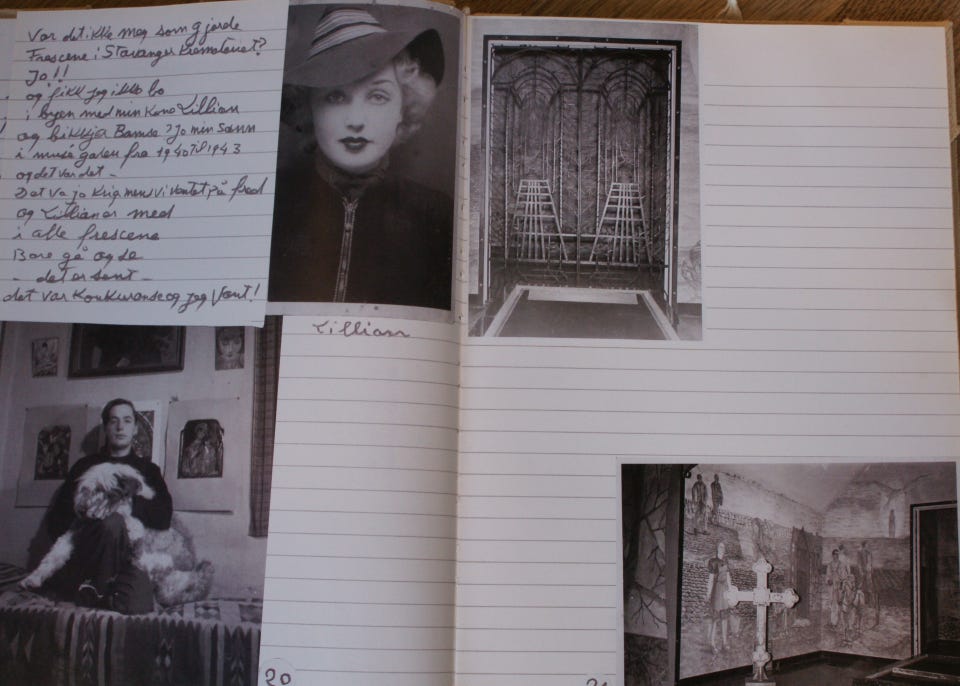 Var det ikke meg som gjorde
Frescene i Stavanger Krematoriet?
Jo!!
og fikk jeg ikke bo
i byen med min Kone Lillian
og bikkja Bamse? Jo min sann
i musé gaten fra 1940 til 1943
og det var det -
Det va jo krig men vi ventet på fred
og Lillian er med
i alle frescene
Bare gå og se
- det er sant -
det var Konkuranse og jeg Vant!
Lillian
20
21